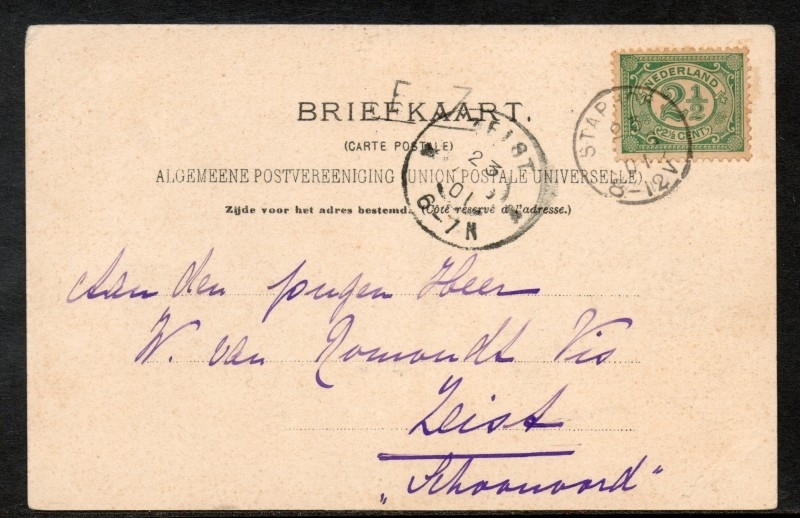 F Z
BRIEFKAART.
(CARTE POSTALE)
ALGEMEENE POSTVEREENIGING (UNION POSTALE UNIVERSELLE)
Zijde voor het adres bestemd. (Côté réservé à l'adresse.)
NEDERLAND
2½
2½ CENT
STAPH
01
8-12V
ZEIST
23
01
6-7N
Aan den jongen Heer
W. van Romondt Vis
Zeist
„Schoonoord"